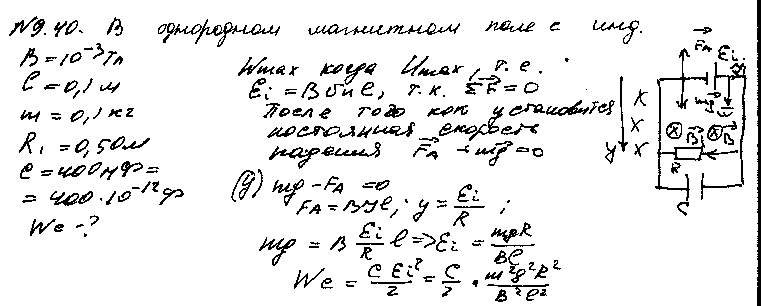 №9.40. В однородном магнитном поле с инд.
B = 10⁻³ Тл
l = 0,1 м
m = 0,1 кг
R₁ = 0,5 Ом
C = 400 пФ =
= 400·10⁻¹² Ф
Wc - ?
Wmax когда Umax, т.е.
Ei = Bυl, т.к. ΣF⃗ = 0
После того как установится
постоянная скорость
падения F⃗A + mg⃗ = 0
(y) mg - FA = 0
FA = BYl; y = Ei/R ;
mg = B Ei/R l => Ei = mgR/Bl
Wc = C Ei²/2 = C/2 · m²g²R²/B²l²
F⃗A
Ei
mg⃗
y
X
X
X
B⃗
B⃗
R
C